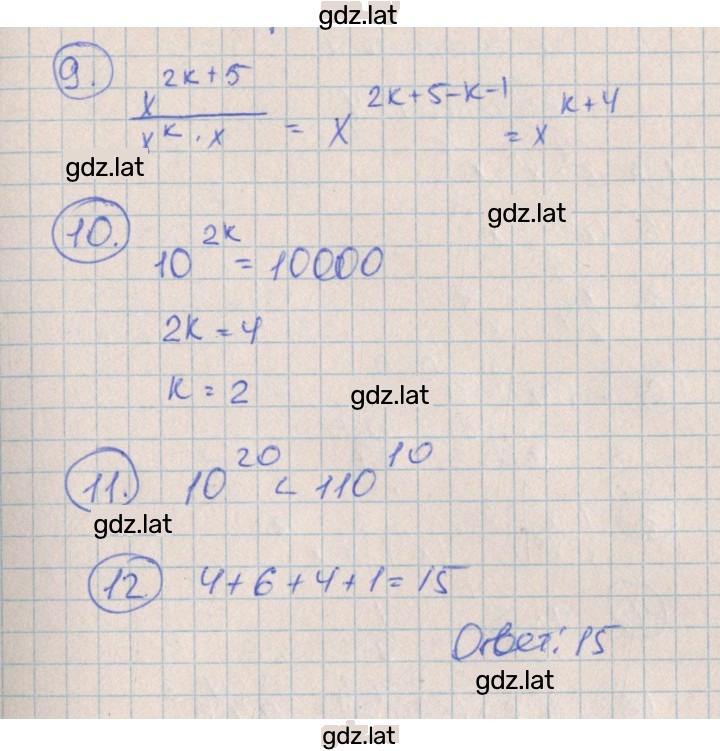 gdz.lat
9. x^(2k+5) / (x^k · x) = x^(2k+5-k-1) = x^(k+4)
gdz.lat
gdz.lat
10. 10^(2k) = 10000
2k = 4
k = 2
gdz.lat
11. 10^20 < 110^10
gdz.lat
12. 4+6+4+1=15
Ответ: 15
gdz.lat
gdz.lat